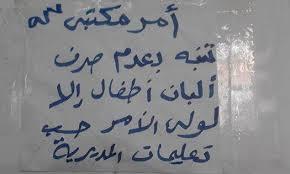 أمر مكتبى
تنبه بعدم صرف
ألبان أطفال إلا
لولى الأمر حسب
تعليمات المديرية